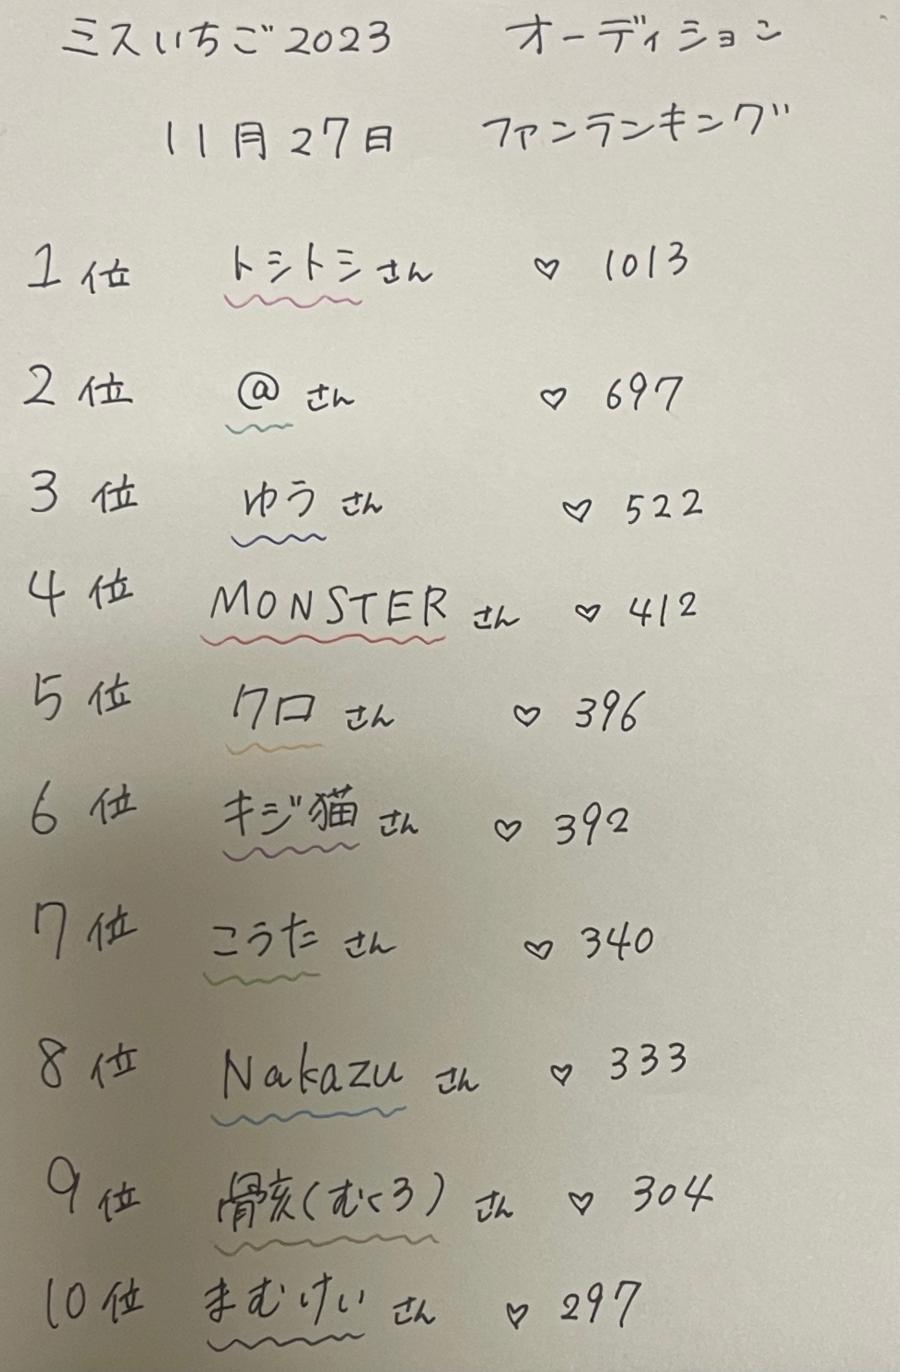 ミスいちご2023 オーディション
11月27日 ファンランキング
1位 トシトシさん ♡ 1013
2位 @さん ♡ 697
3位 ゆうさん ♡ 522
4位 MONSTERさん ♡ 412
5位 クロさん ♡ 396
6位 キジ猫さん ♡ 392
7位 こうたさん ♡ 340
8位 Nakazuさん ♡ 333
9位 骨亥(むくろ)さん ♡ 304
10位 まむけいさん ♡ 297